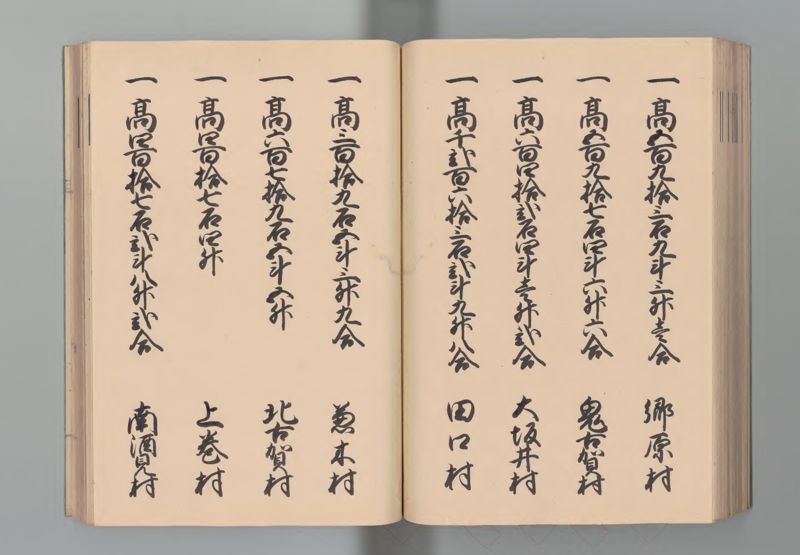 一高五百九拾三石九斗三升壱合 郷原村
一高五百九拾七石四斗六升六合 鬼古賀村
一高六百四拾弐石四斗壱升弐合 大坂井村
一高千弐百六拾三石弐斗九升八合 田口村
一高三百拾九石五斗三升九合 荒木村
一高六百七拾九石五斗五升 北古賀村
一高四百拾七石四升 上巻村
一高四百拾七石弐斗八升弐合 南酒見村